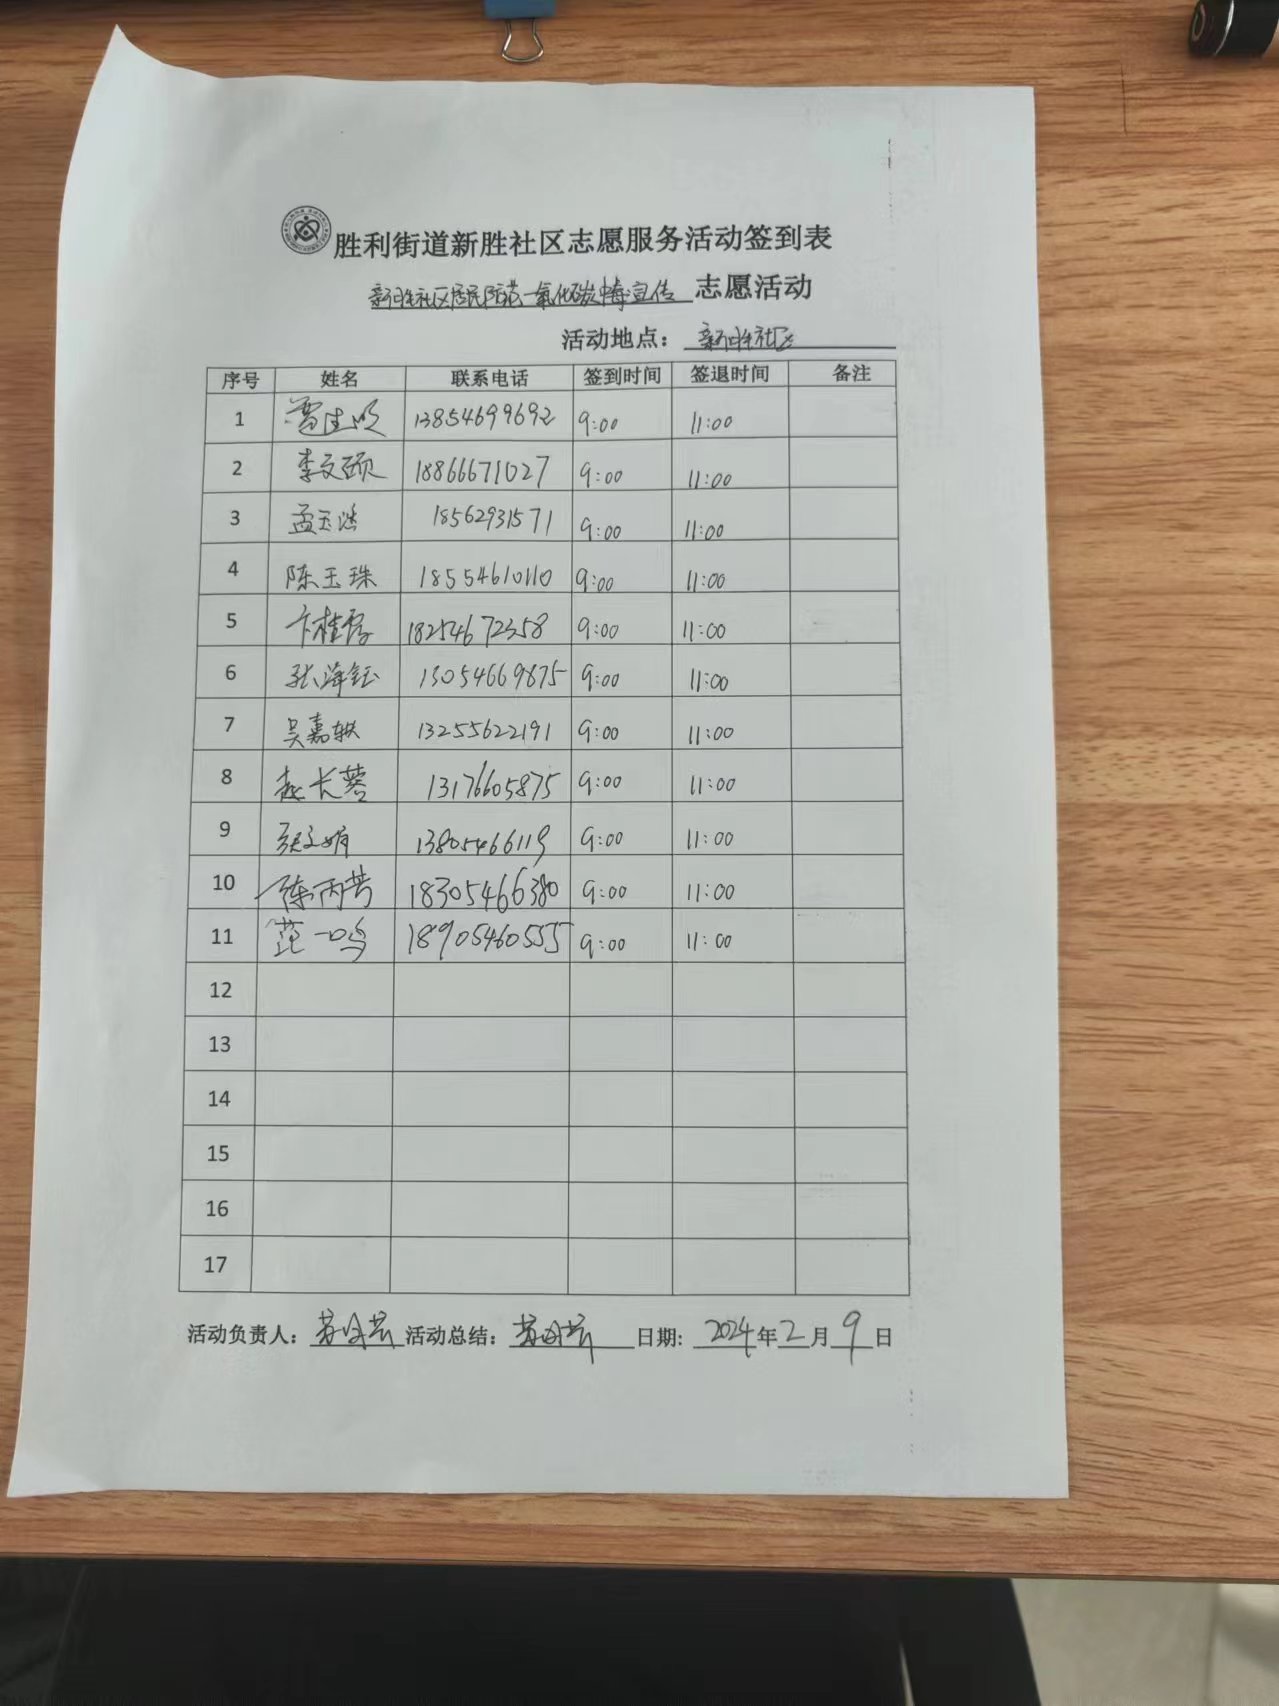 胜利街道新胜社区志愿服务活动签到表
新胜社区居民防范一氧化碳中毒宣传 志愿活动
活动地点： 新胜社区
序号 姓名 联系电话 签到时间 签退时间 备注
1 13854699692 9:00 11:00
2 李文硕 18866671027 9:00 11:00
3 孟玉浩 18562931571 9:00 11:00
4 陈玉珠 18554610110 9:00 11:00
5 18254672358 9:00 11:00
6 张海钰 13054669875 9:00 11:00
7 吴嘉轶 13255622191 9:00 11:00
8 赵长蓉 13176605875 9:00 11:00
9 张文娟 13805466119 9:00 11:00
10 陈丙芳 18305466380 9:00 11:00
11 范一鸣 18905460555 9:00 11:00
12
13
14
15
16
17
活动负责人： 活动总结： 日期: 2024年2月9日